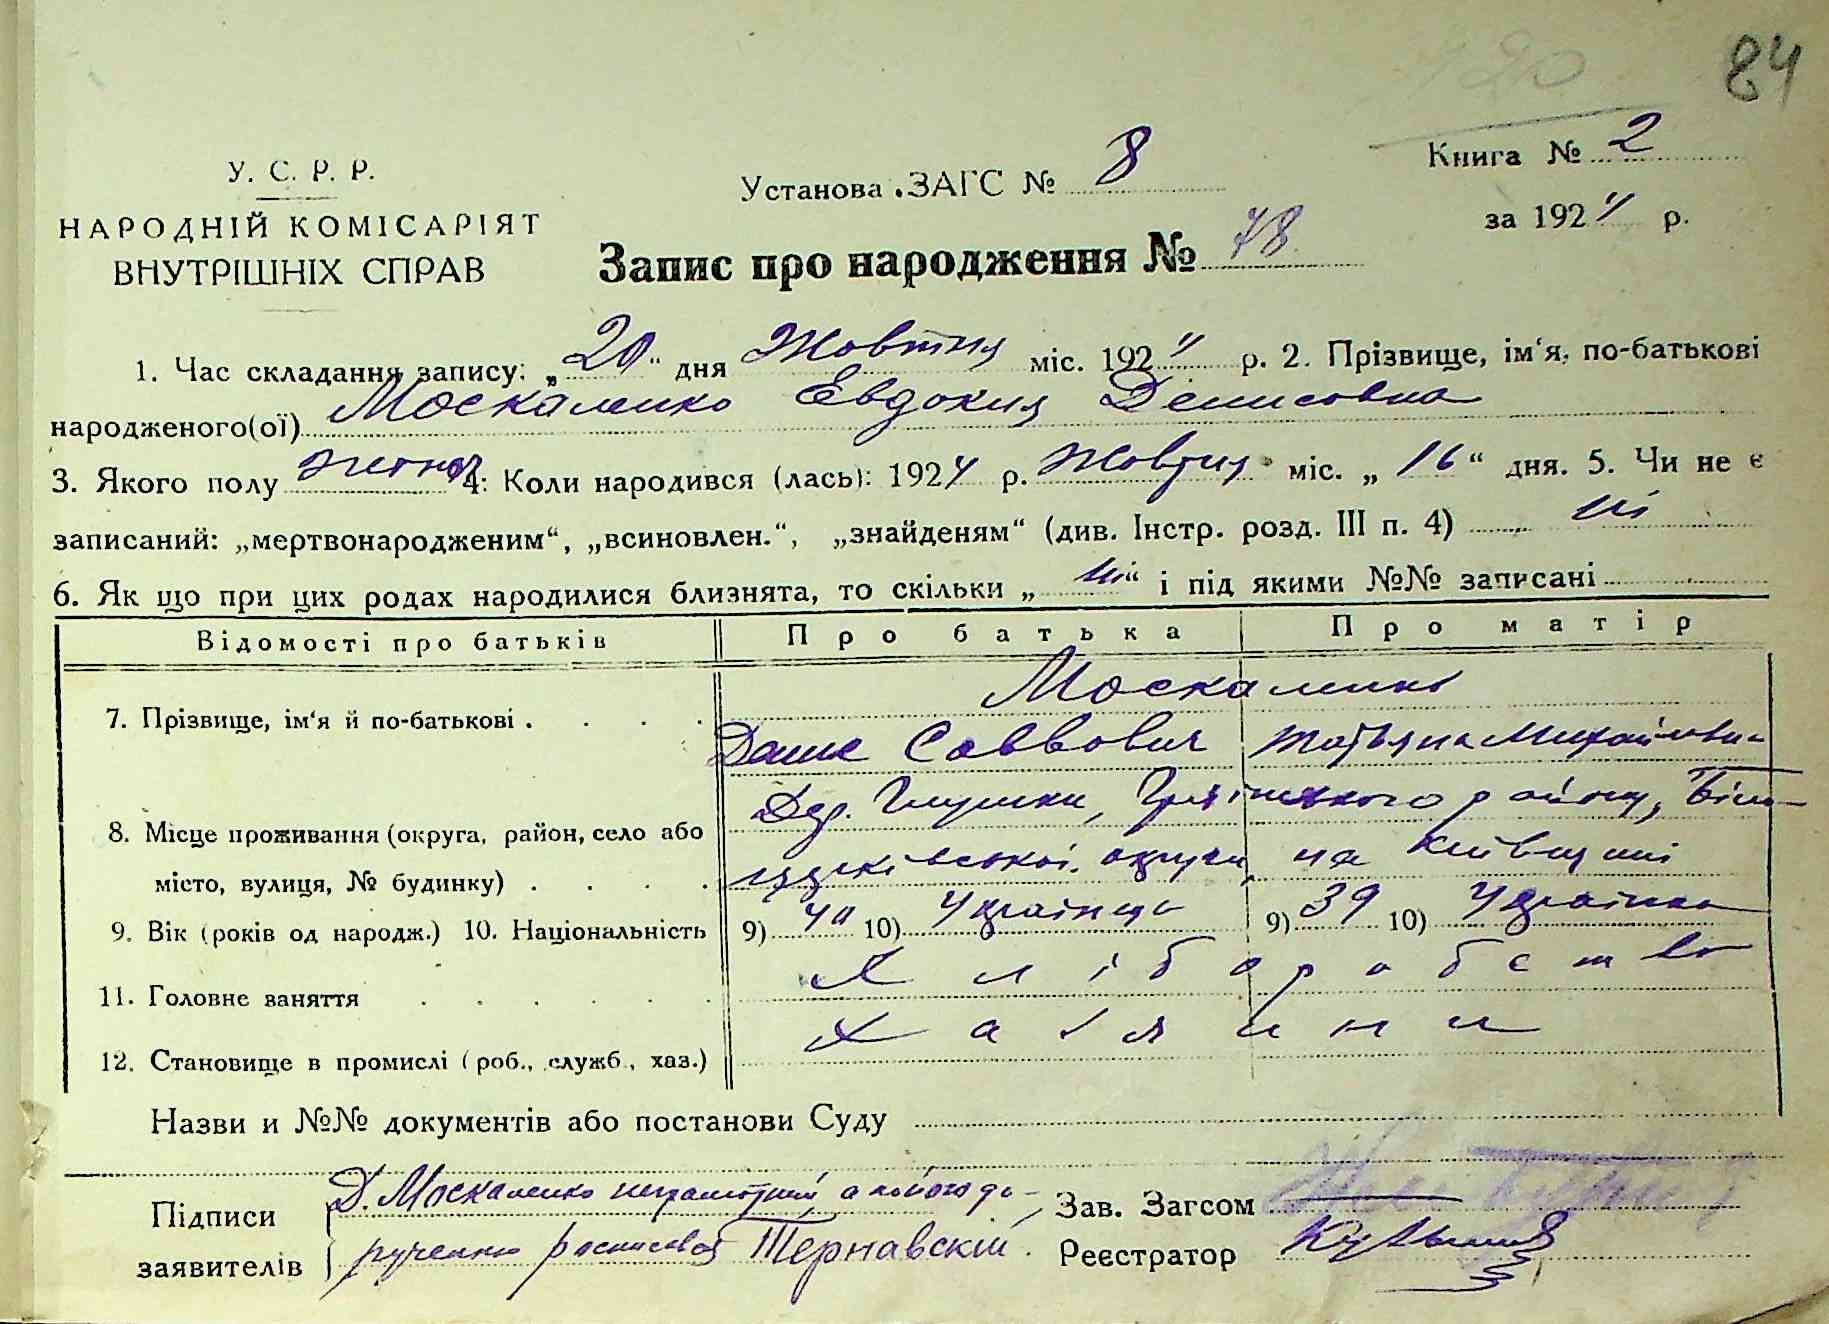 84
У. С. Р. Р.
НАРОДНІЙ КОМІСАРІЯТ
ВНУТРІШНІХ СПРАВ
Установа ЗАГС № 8
Книга № 2
за 1924 р.
Запис про народження № 78
1. Час складання запису: „20“ дня Жовтня міс. 1924 р. 2. Прізвище, ім‘я, по-батькові
народженого(ої) Москаленко Евдокия Денисовна
3. Якого полу 4: Коли народився (лась): 1924 р. Жовтня міс. „16“ дня. 5. Чи не є
записаний: „мертвонародженим“, „всиновлен.“, „знайденям“ (див. Інстр. розд. III п. 4) ні
6. Як що при цих родах народилися близнята, то скільки „ні“ і під якими №№ записані
Відомості про батьків Про батька Про матір
7. Прізвище, ім‘я й по-батькові . . . .
Саввович Татьяна
8. Місце проживання (округа, район, село або
Дер. району, Біло-
місто, вулиця, № будинку) . . . .
церківської округи, на Київщині
9. Вік (років од народж.) 10. Національність 9) 40 10) Українець 9) 39 10) Українка
11. Головне заняття . . . . . . Хліборобство
12. Становище в промислі (роб., служб., хаз.)
Назви и №№ документів або постанови Суду
Підписи
заявителів
Д. Москаленко неграмотний, а по його до-
рученню росписався Тернавскій.
Зав. Загсом
Реєстратор